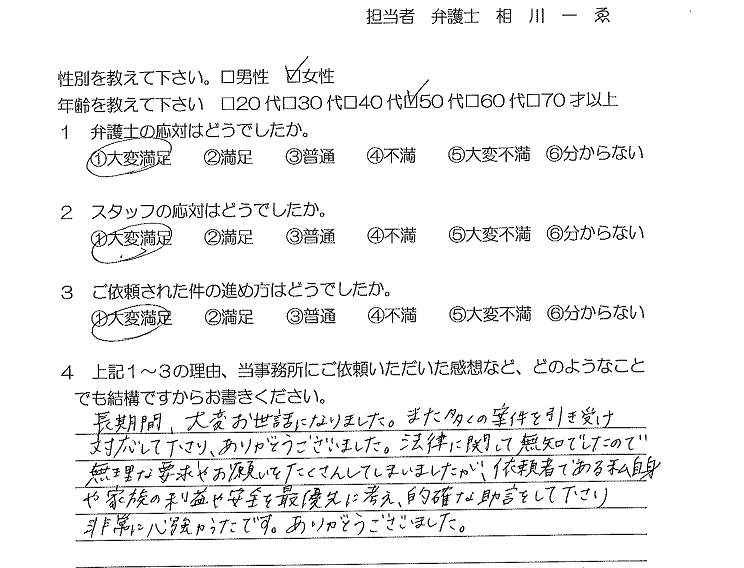 担当者 弁護士 相川一ゑ
性別を教えて下さい。□男性 ☑女性
年齢を教えて下さい □20代□30代□40代☑50代□60代□70才以上
1 弁護士の応対はどうでしたか。
①大変満足 ②満足 ③普通 ④不満 ⑤大変不満 ⑥分からない
2 スタッフの応対はどうでしたか。
①大変満足 ②満足 ③普通 ④不満 ⑤大変不満 ⑥分からない
3 ご依頼された件の進め方はどうでしたか。
①大変満足 ②満足 ③普通 ④不満 ⑤大変不満 ⑥分からない
4 上記1～3の理由、当事務所にご依頼いただいた感想など、どのようなこと
でも結構ですからお書きください。
長期間、大変お世話になりました。また多くの案件を引き受け
対応して下さり、ありがとうございました。法律に関して無知でしたので
無理な要求やお願いをたくさんしてしまいましたが、依頼者である私自身
や家族の利益や安全を最優先に考え、的確な助言をして下さり
非常に心強かったです。ありがとうございました。